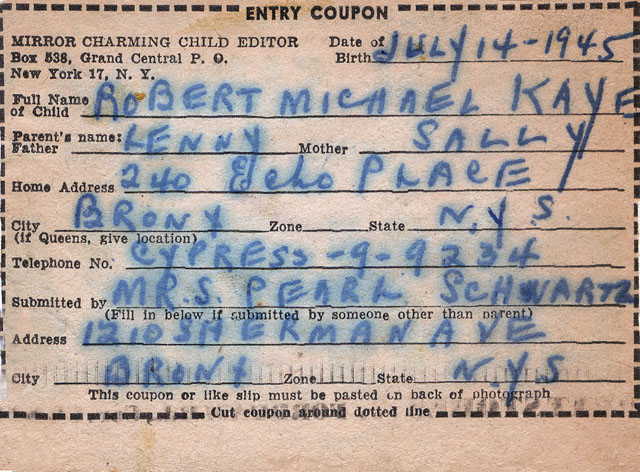 ENTRY COUPON
MIRROR CHARMING CHILD EDITOR
Box 538, Grand Central P. O.
New York 17, N. Y.
Date of Birth JULY 14-1945
Full Name of Child ROBERT MICHAEL KAYE
Parent's name: Father LENNY Mother SALLY
Home Address 240 Echo PLACE
City BRONX Zone State N.Y.S.
(if Queens, give location)
Telephone No. CYPRESS-9-9234
Submitted by MRS. PEARL SCHWARTZ
(Fill in below if submitted by someone other than parent)
Address 1210 SHERMAN AVE
City BRONX Zone State N.Y.S
This coupon or like slip must be pasted on back of photograph
Cut coupon around dotted line